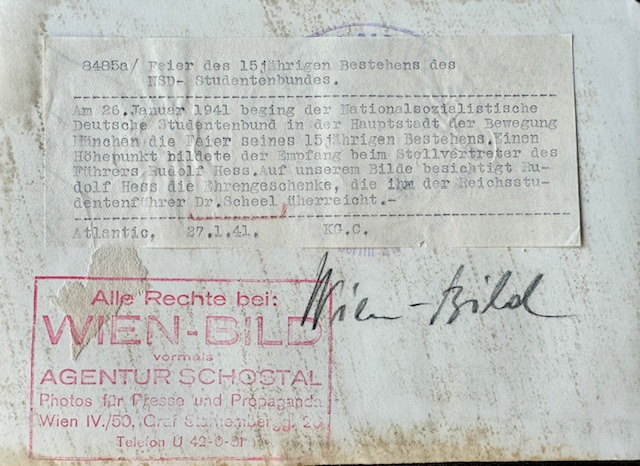 8485a/ Feier des 15jährigen Bestehens des
NSD- Studentenbundes.
Am 26.Januar 1941 beging der Nationalsozialistische
Deutsche Studentenbund in der Hauptstadt der Bewegung
München die Feier seines 15jährigen Bestehens.Einen
Höhepunkt bildete der Empfang beim Stellvertreter des
Führers Rudolf Hess.Auf unserem Bilde besichtigt Ru-
dolf Hess die Ehrengeschenke, die ihm der Reichsstu-
dentenführer Dr.Scheel überreicht.-
Atlantic. 27.1.41. KG.C.
Wien-Bild
Alle Rechte bei:
WIEN-BILD
vormals
AGENTUR SCHOSTAL
Photos für Presse und Propaganda
Wien IV./50, Graf
Telefon U 42-0-51